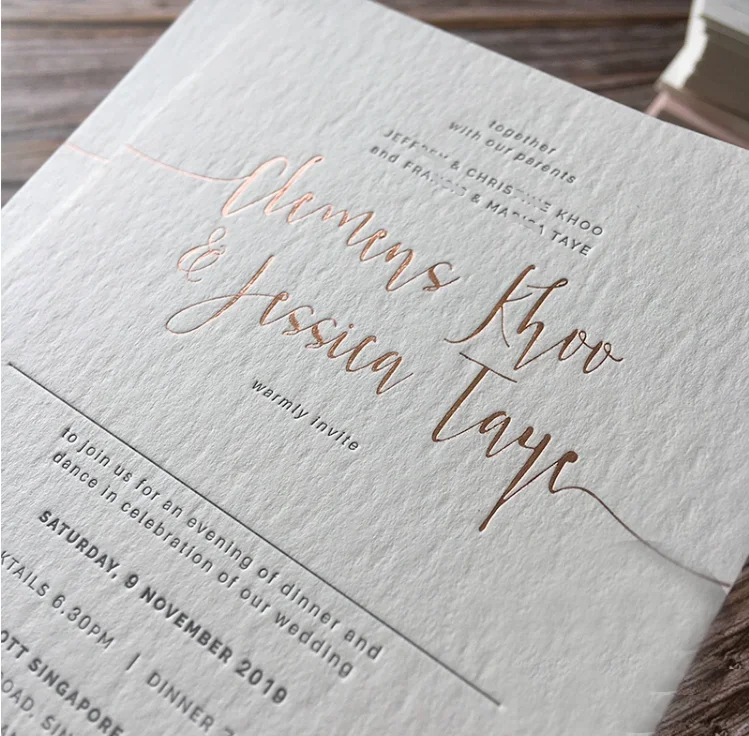 together
with our parents
JEFFREY & CHRISTINE KHOO
and FRANCIS & MARISA TAYE
Clemens Khoo
& Jessica Taye
warmly invite
to join us for an evening of dinner and
dance in celebration of our wedding
SATURDAY, 9 NOVEMBER 2019
KTAILS 6.30PM | DINNER 7
OTT SINGAPORE
ROAD, SIN